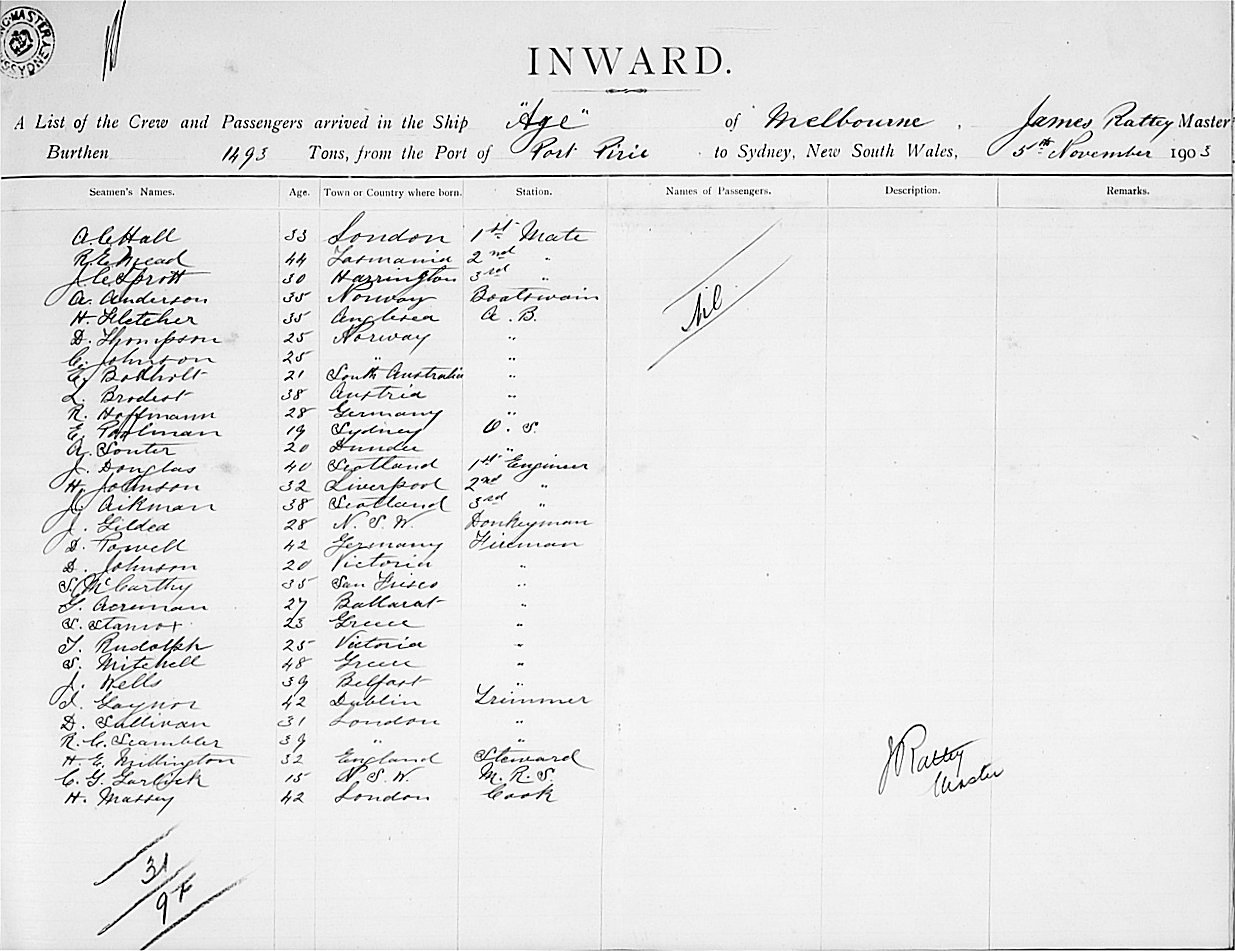 INWARD.
A List of the Crew and Passengers arrived in the Ship "Age" of Melbourne, James Rattey Master
Burthen 1493 Tons, from the Port of Port Pirie to Sydney, New South Wales, 5th November 1903
Seamen's Names. Age. Town or Country where born. Station. Names of Passengers. Description. Remarks.
A. C. Hall 33 London 1st Mate
R. E. Mead 44 Tasmania 2nd "
J. C. Sprott 30 Harrington 3rd "
A. Anderson 35 Norway Boatswain
Nil
H. Fletcher 35 Anglesea A. B.
D. Thompson 25 Norway "
C. Johnson 25 " "
C. Bodholt 21 South Australia "
L. Brodest 38 Austria "
R. Hoffmann 28 Germany "
E. Poolman 19 Sydney O. S.
A. Souter 20 Dundee "
J. Douglas 40 Scotland 1st Engineer
H. Johnson 32 Liverpool 2nd "
J. Aikman 38 Scotland 3rd "
J. Gilded 28 N. S. W. Donkeyman
D. Powell 42 Germany Fireman
D. Johnson 20 Victoria "
S. McCarthy 35 San Frisco "
G. Acreman 27 Ballarat "
S. 23 Greece "
T. Rudolph 25 Victoria "
S. Mitchell 48 Greece "
J. Wells 39 Belfast "
J. Gaynor 42 Dublin Trimmer
D. Sullivan 31 London "
R. C. Scambler 39 " "
H. E. Millington 32 England Steward
C. G. Garlick 15 N. S. W. M. R. S.
H. Massey 42 London Cook
J Rattey
Master
31